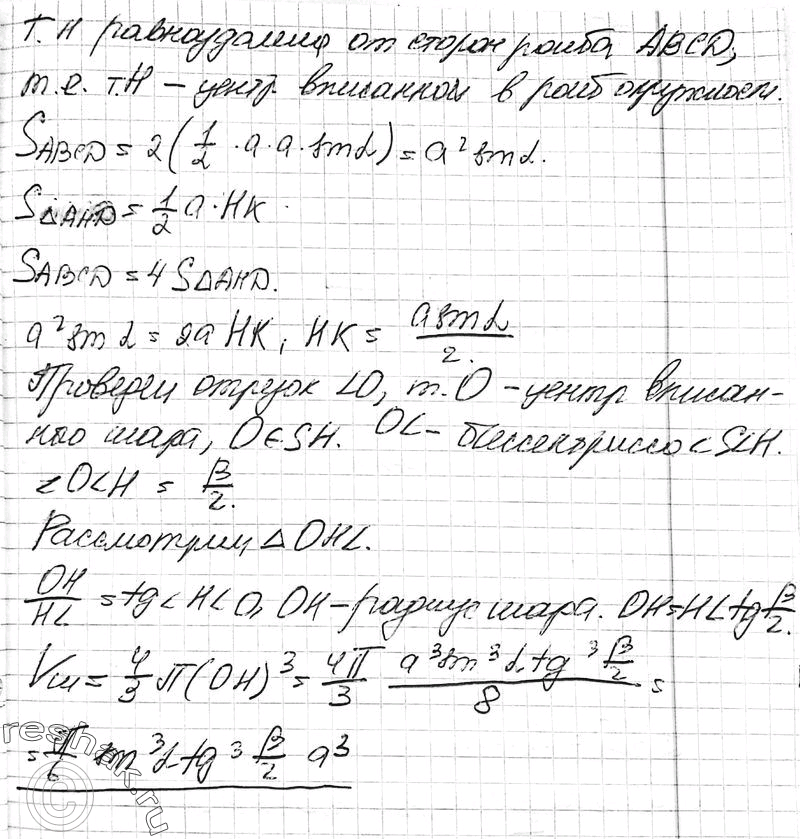 т. H равноудалена от сторон ромба ABCD,
т.е. т.H – центр вписанной в ромб окружности.
S_ABCD = 2(1/2 · a · a · sin α) = a² sin α.
S_ΔAHD = 1/2 a · HK
S_ABCD = 4 S_ΔAHD.
a² sin α = 2a HK, HK = a sin α / 2.
Проведем отрезок LO, т. O – центр вписан-
ного шара, O ∈ SH. OL – биссектрисса ∠ SLH.
∠OLH = β/2.
Рассмотрим Δ OHL.
OH/HL = tg ∠ HLO, OH – радиус шара. OH = HL tg β/2.
Vш = 4/3 π (OH)³ = 4π/3 a³ sin³ α · tg³ β/2 / 8 =
= π/6 sin³ α · tg³ β/2 a³
© reshak.ru